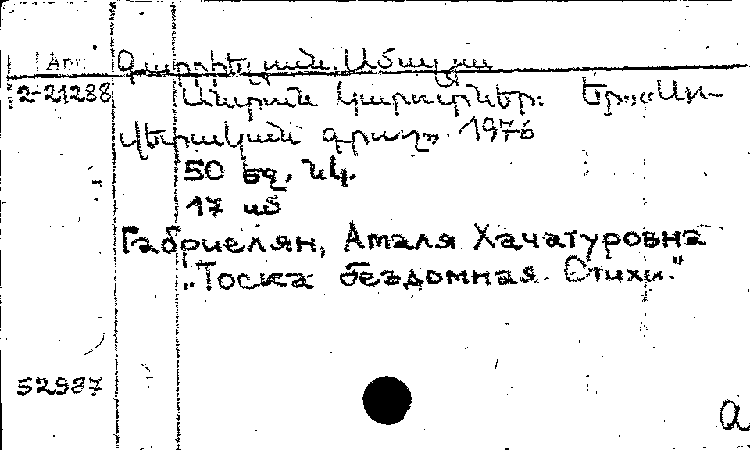 Арм Գաբրիելյան, Ամալյա
2-21288 Անտուն կարոտներ: Եր., «Սո-
վետական գրող» 1976
50 էջ, նկ.
17 սմ
Габриелян, Аталя Хачатуровна
„Тоска бездомная. Стихи."
52987
а